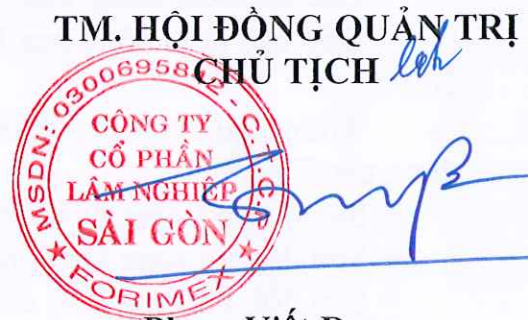 TM. HỘI ĐỒNG QUẢN TRỊ
CHỦ TỊCH
MSDN: 0300695812 - C.T.C.P
CÔNG TY
CỔ PHẦN
LÂM NGHIỆP
SÀI GÒN
★ FORIMEX ★
Viết